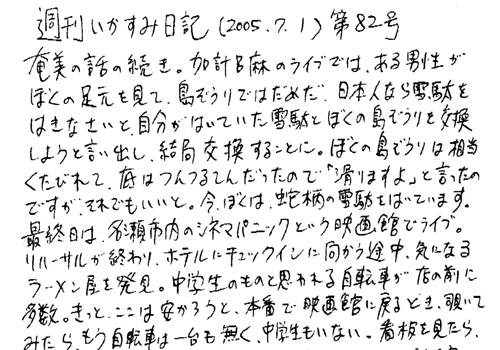 週刊いかすみ日記(2005.7.1)第82号
奄美の話の続き。加計呂麻のライブでは、ある男性が
ぼくの足元を見て、島ぞうりではだめだ、日本人なら雪駄を
はきなさいと、自分がはいていた雪駄とぼくの島ぞうりを交換
しようと言い出し、結局交換することに。ぼくの島ぞうりは相当
くたびれて、底はつんつるてんだったので「滑りますよ」と言ったの
ですが、それでもいいと。今、ぼくは、蛇柄の雪駄をはいています。
最終日は、名瀬市内のシネマパニックという映画館でライブ。
リハーサルが終わり、ホテルにチェックインに向かう途中、気になる
ラーメン屋を発見。中学生のものと思われる自転車が店の前に
多数。きっと、ここは安かろうと、本番で映画館に戻るとき、覗いて
みたら、もう自転車は一台も無く、中学生もいない。看板を見たら、